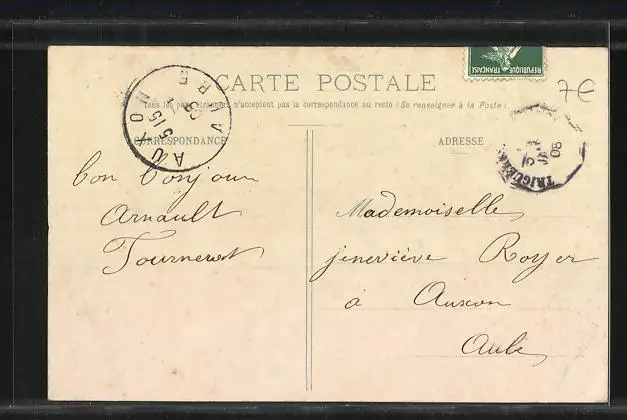 REPUBLIQUE FRANÇAISE
7€
CARTE POSTALE
Tous les pays étrangers n'acceptent pas la correspondance au recto (Se renseigner à la Poste)
CORRESPONDANCE
ADRESSE
AUXON
5 15
08
08
Bon bonjour
Arnault
Mademoiselle
jeneviève Royer
à Auxon
Aube